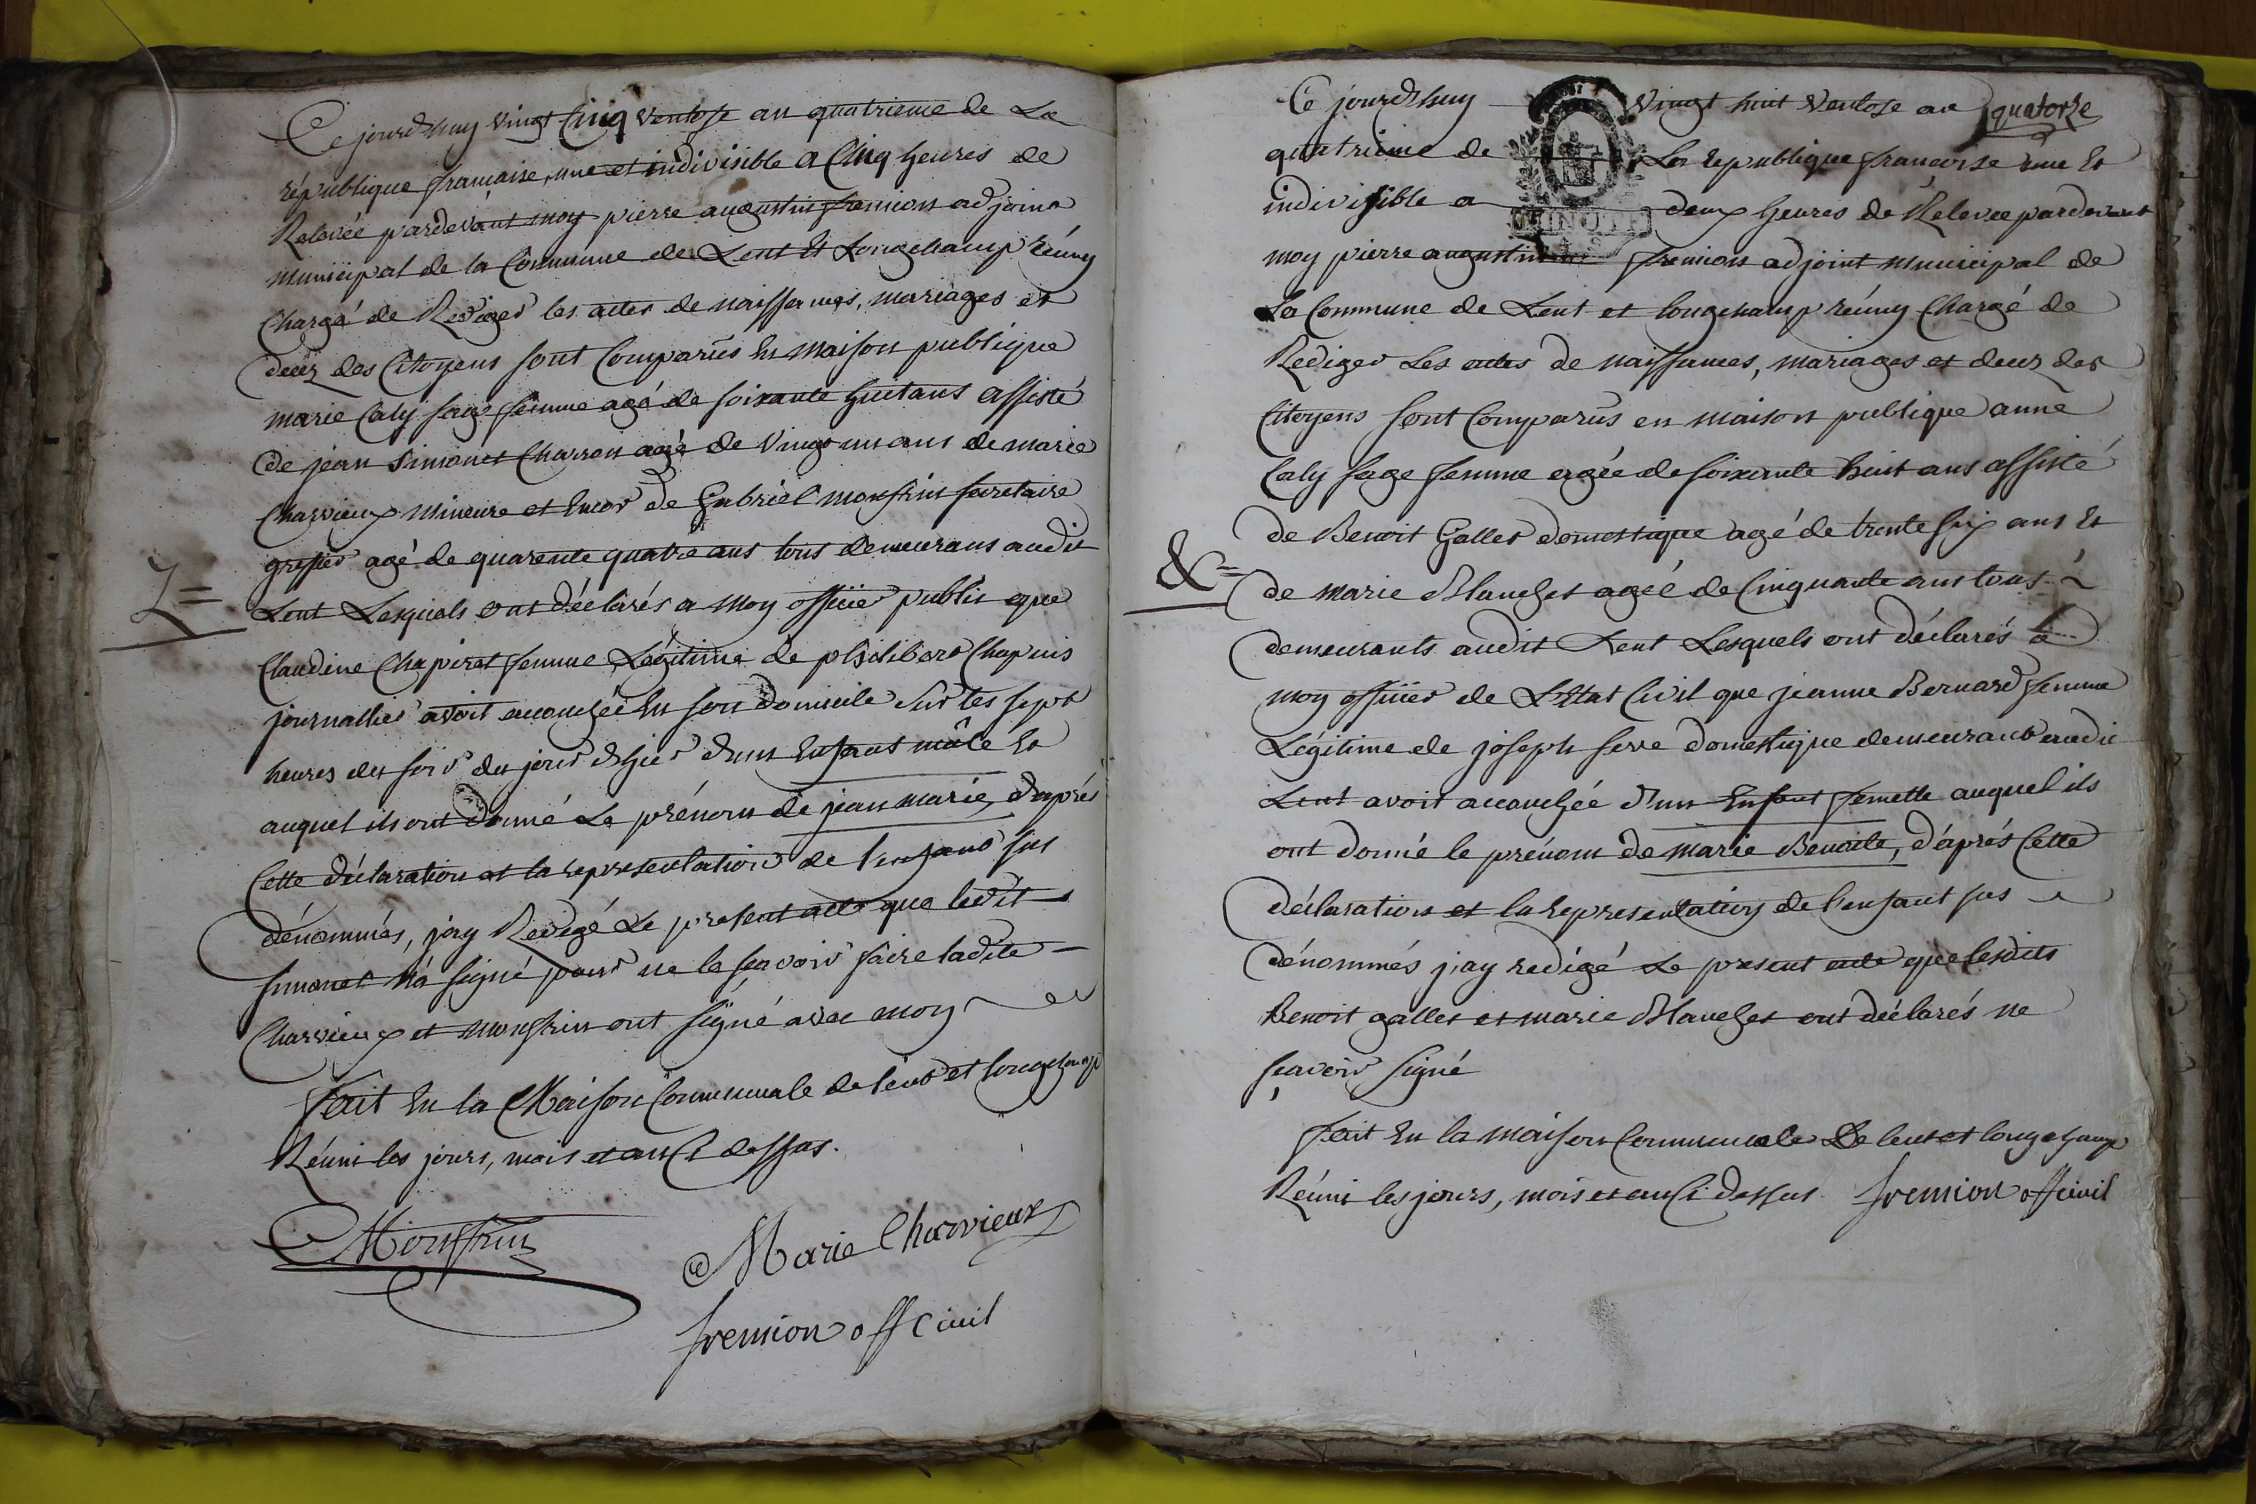 Ce jourd'huy vingt Cinq ventose an quatrieme de La
république française, une et indivisible a Cinq heures de
Relevée pardevant moy pierre augustin fremion adjoint
municipal de la Commune de Lent Et Longchamp réuny
Chargé de Rediger les actes de naissances, mariages et
decez des Citoyens sont Comparus En maison publique
marie Caly sage femme agé de soixante huit ans assisté
de jean Simonet Charron agé de vingt un ans de marie
Charvieux mineure et Encor de Gabriel monfrin secretaire
grefier agé de quarente quatre ans tous demeurans audit
Lent Lesquels ont déclarés a moy officier public que
Z=
Claudine Chapiret femme Légitime de philibert Chapuis
journallier avoit accouchée En son domicile Sur les sept
heures du soir du jour d'hier d'un Enfant mâle Et
auquel ils ont donné Le prénom de jean marie, d'aprés
Cette déclaration et la representation de l'enfant sus
dénommés, j'ay Redigé Le present acte que ledit
simonet n'a signé pour ne le sçavoir faire ladite
Charvieux et monfrin ont signé avec moy
fait En la Maison Communale de lent et longchamp
Réuni les jours, mois et an Ci dessus.
Monffrin
Marie Charvieux
fremion off civil
quatorze
Ce jourd'huy vingt huit ventose an
quatrieme de La republique françoise une Et
indivisible a deux heures de Relevee pardevant
moy pierre augustin fremion adjoint municipal de
La Commune de Lent et longchamp réuny Chargé de
Rediger Les actes de naissances, mariages et decez des
Citoyens sont Comparus en maison publique anne
Caly sage femme agée de soixante huit ans assisté
de Benoit Galles domestique agé de trente six ans Et
&=
de marie Blanchet agée de Cinquante ans tous
demeurants audit Lent Lesquels ont déclarés a
moy officier de L'Etat Civil que jeanne Bernard femme
Légitime de joseph serve domestique demeurant audit
Lent avoit accouchée d'un Enfant femelle auquel ils
ont donné le prénom de marie Benoite, d'aprés Cette
déclaration et la representation de l'enfant sus
dénommés j'ay redigé Le present acte que lesdits
Benoit galles et marie Blanchet ont déclarés ne
sçavoir signé
fait En la maison Communale De lent et longchamp
Réuni les jours, mois et an Ci dessus fremion off civil